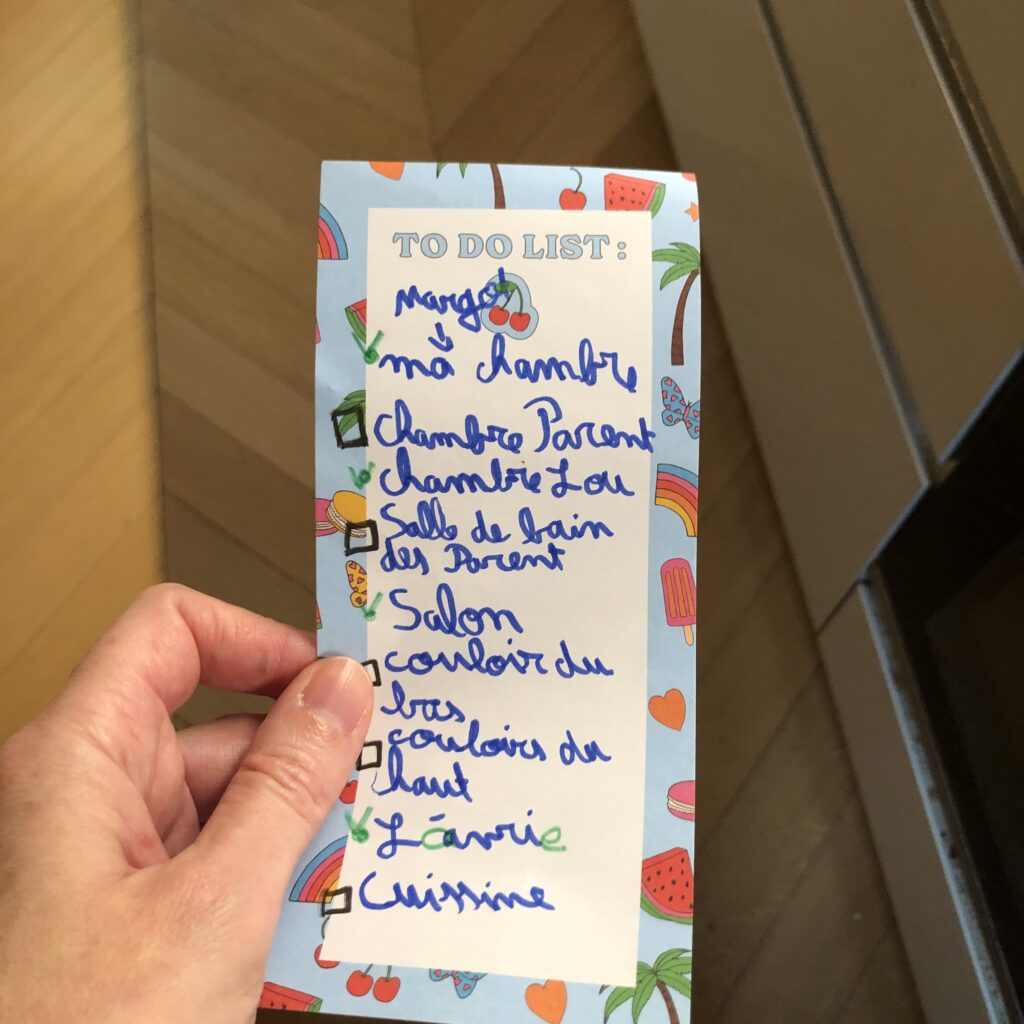 TO DO LIST :
Margot
ma chambre
chambre Parent
chambre Lou
Salle de bain
des Parent
Salon
couloir du
bas
couloirs du
haut
Cuissine